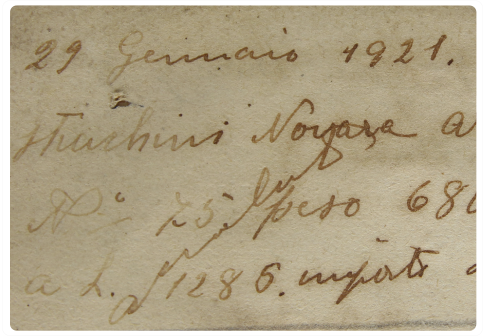 29 Gennaio 1921.
Struchini Novara a
N° 75 peso 680
a L. 1286. importo